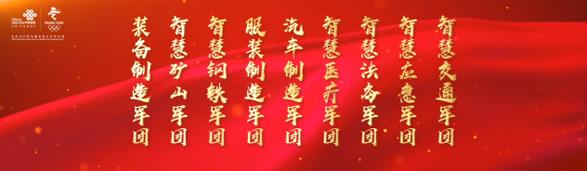 China unicom中国联通
BEIJING 2022
装备制造军团
智慧矿山军团
智慧钢铁军团
服装制造军团
汽车制造军团
智慧医疗军团
智慧法务军团
智慧应急军团
智慧交通军团